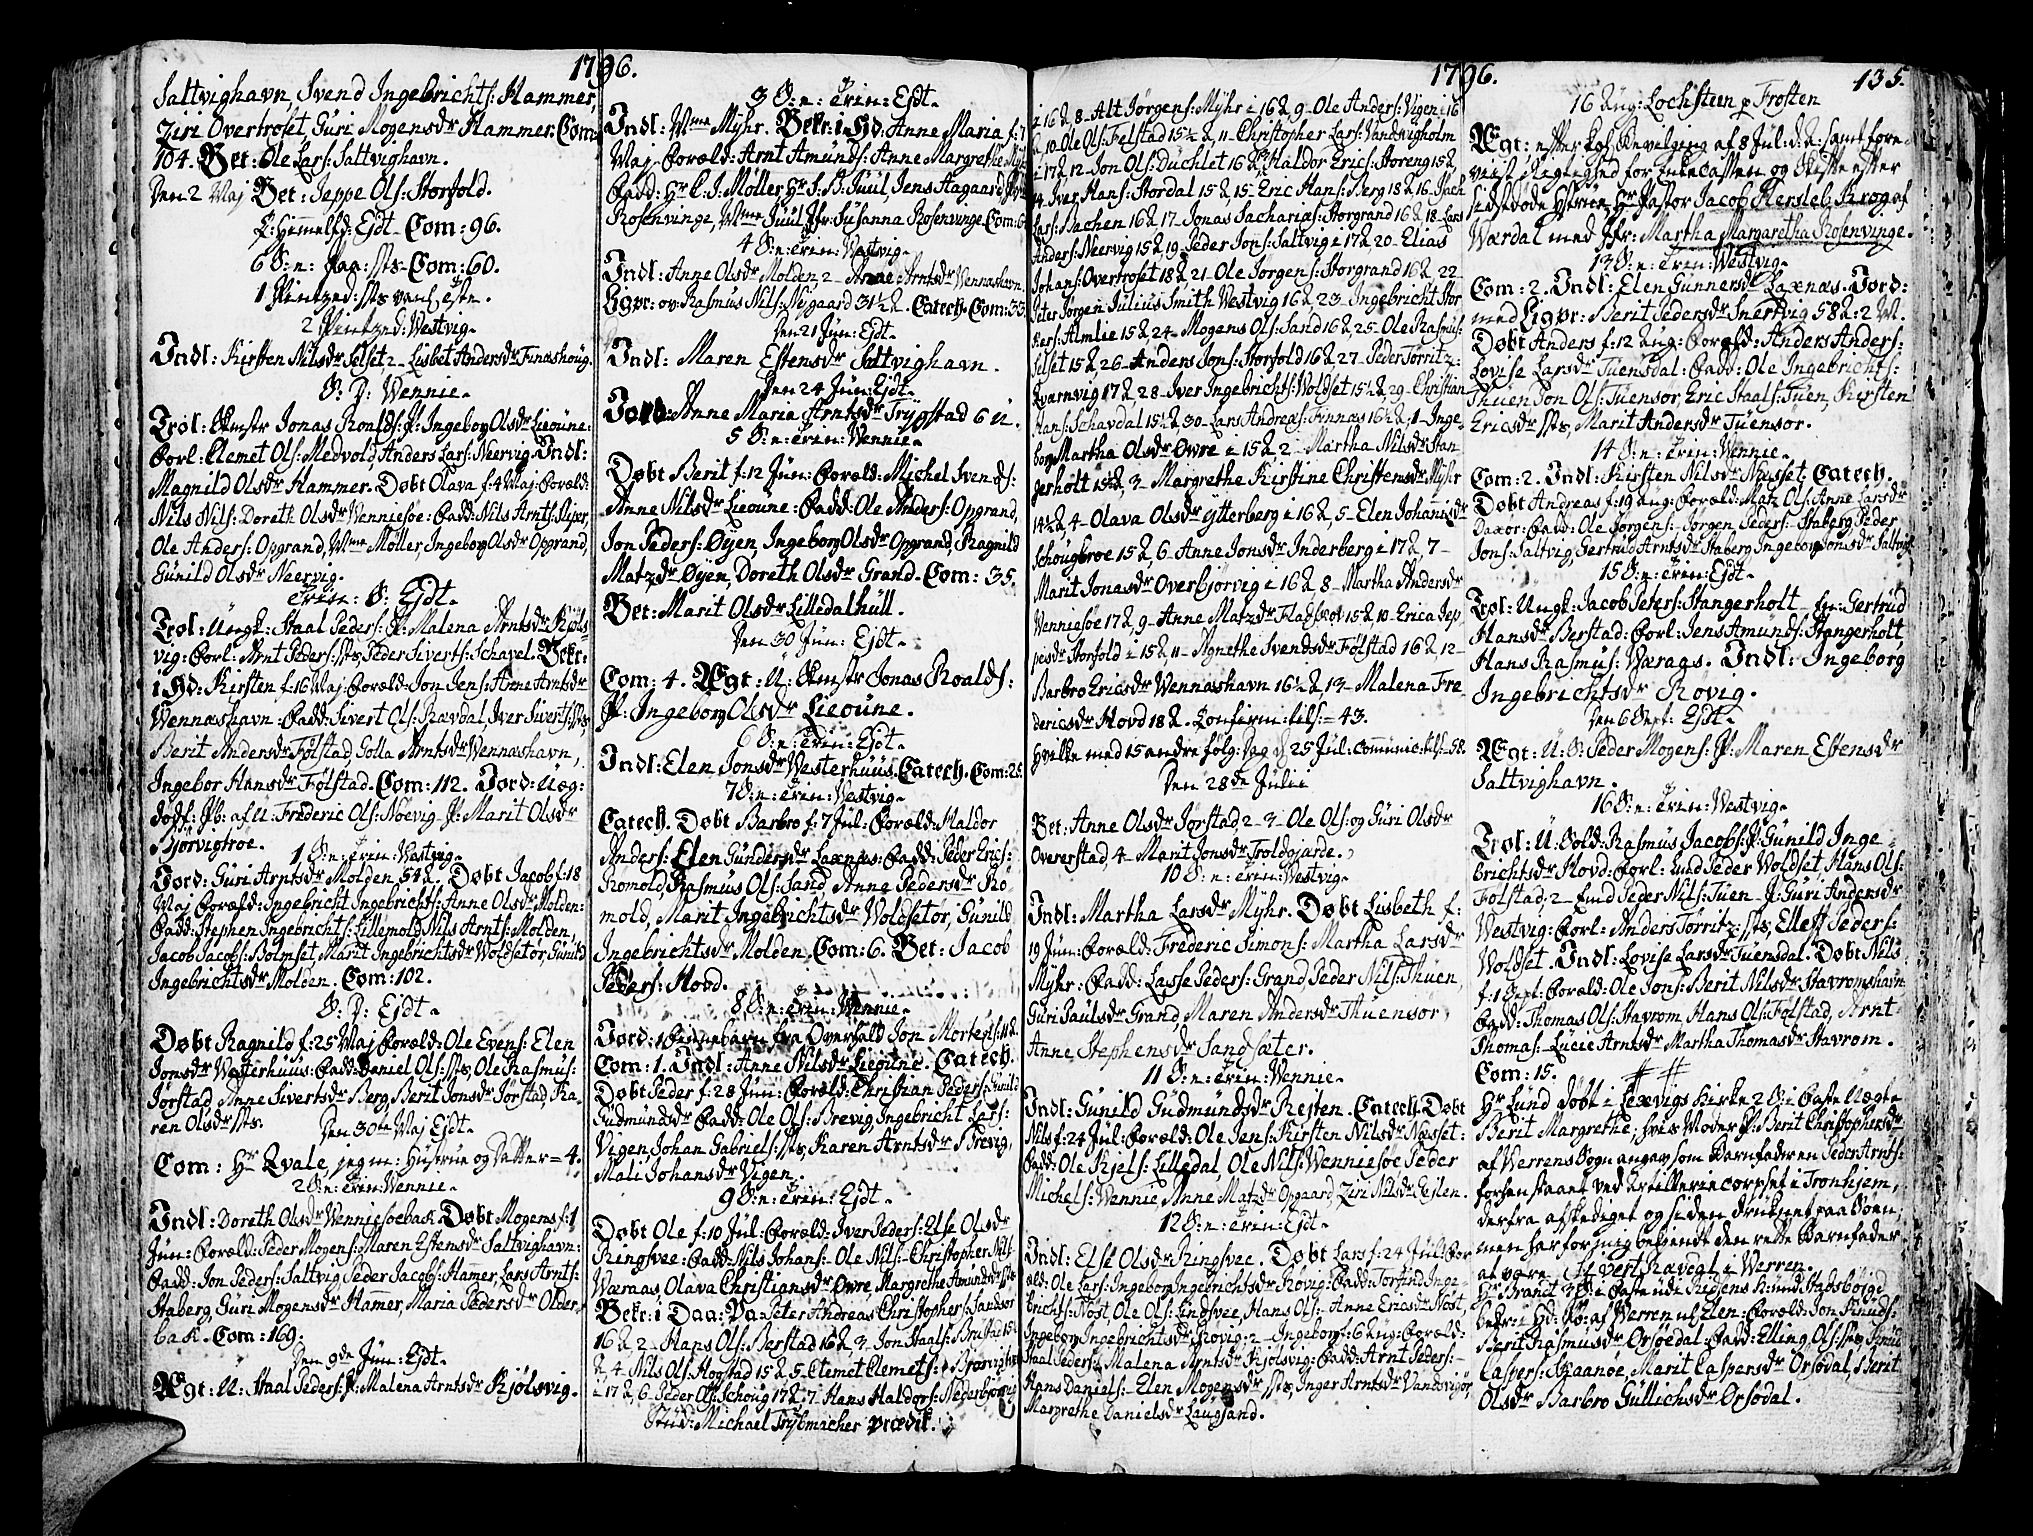 1796.
Saltvighavn, Svend Ingebrichts: Hammer,
Ziri Overtroset, Guri Mogensdr Hammer. Com:
104. Bet: Ole Lars: Saltvighavn.
Den 2 Maj Bet: Jeppe Ols: Storfold.
X: Himmelfd: Ejdt. Com: 96.
6 S: n: Paa: sts. Com: 60.
1 Pintzed: sts vansk: efte.
2 Pintzed: Westvig.
Indl: Kirsten Nilsdr Selset 2 Lisbet Andersdr Finashoug.
S: D: Wennie.
Trol: Enkemstr Jonas Roalds: P: Ingeborg Olsdr Lieoune:
Forl: Clemet Ols: Medvold, Anders Lars: Neervig. Indl:
Magnild Olsdr Hammer. Døbt Olava f: 4 Maj: Foræld:
Nils Nils: Doreth Olsdr Wenniesøe: Fadd: Nils Arnts:
Ole Anders: Opgrand, Mme Møller, Ingeborg Olsdr Opgrand,
Gunild Olsdr Neervig.
Trin: S: Ejdt.
Trol: Ungk: Staal Peders: P: Malena Arntsdr Kjøls-
vig: Forl: Arnt Peders: sts, Peder Siverts: Schavel. Bekr:
i Hd: Kirsten f: 16 Maj: Foræld: Jon Jens: Anne Arntsdr
Wennashavn: Fadd: Sivert Ols: Rævdal, Iver Siverts: sts,
Berit Andersdr Følstad, Golla Arntsdr Wennashavn,
Ingebor Hansdr Følstad. Com: 112. Jord: Uæg-
dødf: Pb: af U: Frederic Ols: Nøevig P: Marit Olsdr
Bjørvigtrøe.
1 S: n: Trin: Westvig.
Jord: Guri Arntsdr Molden 54 Æ. Døbt Jacob f: 18
Maj: Foræld: Ingebricht Ingebrichts: Anne Olsdr Molden:
Fadd: Stephen Ingebrichts: Lillemold, Nils Arnts: Molden,
Jacob Jacobs: Bolmset, Marit Ingebrichtsdr Woldsetør, Gunild
Ingebrichtsdr Molden. Com: 102.
S: D: Ejdt.
Døbt Ragnild f: 25 Maj: Foræld: Ole Evens: Elen
Jonsdr Westerhuus: Fadd: Daniel Ols: sts, Ole Rasmus:
Jørstad, Anne Sivertsdr Berg, Berit Jonsdr Jørstad, Ka-
ren Olsdr sts.
Den 30te Maj Ejdt.
Com: Hr Qvale, jeg m: Hustrue og Datter = 4.
2 S: n: Trin: Wennie.
Indl: Doreth Olsdr Wenniesøebak. Døbt Mogens f: 1
Jun: Foræld: Peder Mogens: Maren Estensdr Saltvighavn:
Fadd: Jon Peders: Saltvig, Peder Jacobs: Hamer, Lars Arnts:
Staberg, Guri Mogensdr Hamer, Maria Pedersdr Older-
bak. Com: 169.
Den 9de Jun: Ejdt.
Ægt: U: Staal Peders: P: Malena Arntsdr Kjølsvig.
3 S: n: Trin: Ejdt.
Indl: Mme Myhr. Bekr: i Hd: Anne Maria f: 7
Maj: Foræld: Arnt Amunds: Anne Margrethe Myhr
Fadd: Hr C. J. Møller, Hr S. B. Juul, Jens Aagaard,
Rosenvinge, Mme Juul, Jfr: Susanna Rosenvinge. Com: 6
4 S: n: Trin: Westvig.
Indl: Anne Olsdr Molden, 2 Anne Arntsdr Wennashavn.
Ligpr: ov: Rasmus Nils: Neigaard 31½ Æ. Catech. Com: 33.
Den 21 Jun: Ejdt.
Indl: Maren Estensdr Saltvighavn.
Den 24 Jun: Ejdt.
Jord: Anne Maria Arntsdr Trygstad 6 u.
5 S: n: Trin: Wennie.
Døbt Berit f: 12 Jun: Foræld: Michel Svends:
Anne Nilsdr Lieoune: Fadd: Ole Anders: Opgrand,
Jon Peders: Øyen, Ingeborg Olsdr Opgrand, Ragnild
Matzdr Øyen, Doreth Olsdr Grand. Com: 35.
Bet: Marit Olsdr Lilledalhull.
Den 30 Jun: Ejdt.
Com: 4. Ægt: U: Enkemstr Jonas Roalds:
P: Ingeborg Olsdr Lieoune.
6 S: n: Trin: Ejdt.
Indl: Elen Jonsdr Westerhuus. Catech. Com: 25.
7 S: n: Trin: Westvig.
Catech. Døbt Barbro f: 7 Jul: Foræld: Haldor
Anders: Elen Gundersdr Laxnæs: Fadd: Peder Erics:
Romold, Rasmus Ols: Sand, Anne Pedersdr Ro-
mold, Marit Ingebrichtsdr Woldsetør, Gunild
Ingebrichtsdr Molden. Com: 6. Bet: Jacob
Peders: Hovd.
8 S: n: Trin: Wennie.
Jord: 1 Pennebarn fra Overhald Jon Mortens: 11 Æ.
Com: 1. Indl: Anne Nilsdr Lieoune. Catech.
Døbt Peder f: 28 Jun: Foræld: Christian Peders: Gunild
Gudmundsdr: Fadd: Ole Ols: Brevig, Ingebricht Lars:
Vigen, Johan Gabriels: sts, Karen Arntsdr Brevig,
Mali Johansdr Vigen.
9 S: n: Trin: Ejdt.
Døbt Ole f: 10 Jul: Foræld: Iver Peders: Else Olsdr
Ringsvee: Fadd: Nils Johans: Ole Nils: Christopher Nils:
Wæraas, Olava Christiansdr Øvre, Margrethe Amundsdr sts.
Bekr: i Daa: Pa: Peter Andreas Christophers: Sandsør
16 Æ 2 Hans Ols: Berstad 16 Æ 3 Jon Staals: Brustad 15
Æ, 4 Nils Ols: Hogstad 15 Æ 5 Clemet Clemets: Brørvighavn
i 17 Æ, 6 Peder Ols: Schoug 17 Æ 7 Hans Haldors: Nederbjørvig
Stud: Michael Trybmacher prædik:
1796. 135.
i 16 Æ 8 Alt Jørgens: Myhr i 16 Æ, 9 Ole Anders: Vigen i 16
Æ, 10 Ole Ols: Følstad 15½ Æ, 11 Christopher Lars: Vandvigholm
i 17 Æ 12 Jon Ols: Duchlet 16 Æ, 13 Haldor Erics: Storeng 15 Æ
14 Iver Hans: Stordal 15 Æ 15 Eric Hans: Berg 18 Æ 16 Zach
Lars: Bachen 16 Æ 17 Jonas Zacharias: Storgrand 16 Æ 18 Lars
Anders: Neervig 15 Æ, 19 Peder Jons: Saltvig i 17 Æ 20 Elias
Johans: Overtroset 18 Æ 21 Ole Jørgens: Storgrand 16 Æ 22
Peter Jørgen Julius Smith Westvig 16 Æ 23 Ingebricht Stor
Kers: Almlie 15 Æ 24 Mogens Ols: Sand 16 Æ, 25 Ole Rasmus:
Selset 15 Æ 26 Anders Jons: Storfold 16 Æ 27 Peder Torritz:
Qvarnvig 17 Æ 28 Iver Ingebrichts: Woldset 15½ Æ 29 Christian
Hans: Schavdal 15½ Æ 30 Lars Andreas: Finnæs 16½ Æ, 1 Inge-
borg Martha Olsdr Øvre i 15 Æ 2 Martha Nilsdr Stan
gerholt 15½ Æ, 3 Margrethe Kirstine Christensdr Myhr
14½ Æ 4 Olava Olsdr Ytterberg i 16 Æ, 5 Elen Johanisdr
Schougbroe 15 Æ, 6 Anne Jonsdr Inderberg i 17 Æ, 7
Marit Jonasdr Overbjørvig i 16 Æ 8 Martha Andersdr
Wenniesøe 17 Æ, 9 Anne Matzdr Fladskov 15 Æ 10 Erica Jep
pesdr Storfold i 15 Æ 11 Agnethe Svendsdr Følstad 16 Æ, 12
Barbro Ericsdr Wennashavn 16½ Æ 13 Malena Fre-
dericsdr Hovd 18 Æ. Confirm: tils: = 43.
hvilke med 15 andre følg: Dag d 25 Jul: communic: tils: 58.
Den 28de Julii
Bet: Anne Olsdr Jørstad, 2 3 Ole Ols: og Guri Olsdr
Overerstad, 4 Marit Jonsdr Troldgjarde.
10 S: n: Trin: Westvig.
Indl: Martha Larsdr Myhr. Døbt Lisbeth f:
19 Jun: Foræld: Frederic Simons: Martha Larsdr
Myhr: Fadd: Lasse Peders: Grand, Peder Nils: Thuen,
Guri Paulsdr Grand, Maren Andersdr Thuensør,
Anne Stephensdr Sandsæter.
11 S: n: Trin: Wennie.
Indl: Gunild Gudmundsdr Rejten. Catech. Døbt
Nils f: 24 Jul: Foræld: Ole Jens: Kirsten Nilsdr Næsset:
Fadd: Ole Kjels: Lilledal, Ole Nils: Wenniesøe, Peder
Michels: Wennie, Anne Matzdr Opgaard, Ziri Nilsdr Rejten.
12 S: n: Trin: Ejdt.
Indl: Else Olsdr Ringsvee. Døbt Lars f: 24 Jul: For
æld: Ole Lars: Ingeborg Ingebrichtsdr Røvig: Fadd: Torfind Inge-
brichts: Nøst, Ole Ols: Lindsvee, Hans Ols: Anne Ericsdr Nøst,
Ingeborg Ingebrichtsdr Røvig: 2 Ingeborg f: 6 Aug: Foræld:
Staal Peders: Malena Arntsdr Kjølsvig: Fadd: Arnt Peders:
Hans Daniels: Elen Mogensdr sts, Inger Arntsdr Vandvigør
Margrethe Danielsdr Laugsand.
16 Aug: Lochsteen p Frosten
Ægt: efter kgl: Bevilging af 8 Jul: d: A: samt fore-
viist Rigtighed for Enkecassen og Skifte efter
sidstdøde Hustrue, Hr Pastor Jacob Hersleb Krog af
Wærdal med Jfr: Martha Margaretha Rosenvinge.
13 S: n: Trin: Westvig.
Com: 2. Indl: Elen Gunnersdr Laxnæs. Jord:
med Ligpr: Berit Pedersdr Inertvig 58 Æ: 2 M.
Døbt Anders f: 12 Aug: Foræld: Anders Anders:
Lovise Larsdr Tuensdal: Fadd: Ole Ingebrichts:
Thuen, Jon Ols: Tuensør, Eric Staals: Tuen, Kirsten
Ericsdr sts, Marit Andersdr Tuensør.
14 S: n: Trin: Wennie.
Com: 2. Indl: Kirsten Nilsdr Næsset. Catech.
Døbt Andreas f: 19 Aug: Foræld: Matz Ols: Anne Larsdr
Daxør: Fadd: Ole Jørgens: Jørgen Peders: Staberg, Peder
Jons: Saltvig, Gertrud Arntsdr Staberg, Ingeborg Jonsdr Saltvig.
15 S: n: Trin: Ejdt.
Trol: Ungk: Jacob Peters: Stangerholt P: Gertrud
Hansdr Berstad: Forl: Jens Amunds: Stangerholt
Hans Rasmus: Wæraas. Indl: Ingeborg
Ingebrichtsdr Røvig.
Den 6 Sept: Ejdt.
Ægt: U: S: Peder Mogens: P: Maren Estensdr
Saltvighavn.
16 S: n: Trin: Westvig.
Trol: U: Sold: Rasmus Jacobs: P: Gunild Inge-
brichtsdr Hovd: Forl: Peder Woldset, Hans Ols:
Følstad, 2 Peder Nils: Tuen P: Guri Andersdr
Westvig: Forl: Anders Torritz: sts, Ellef Peders:
Woldset. Indl: Lovise Larsdr Tuensdal. Døbt Nils
f: 1 Sept: Foræld: Ole Jons: Berit Nilsdr Stavromshavn
Fadd: Thomas Ols: Stavrom, Hans Ols: Følstad, Arnt
Thomas: Lucie Arntsdr Martha Thomasdr Stavrom.
Com: 15.
Hr Lund døbt i Lexvigs Kirke 2 S: i Faste Uægte
Berit Margrethe, hvis Moder P: Berit Christophersdr
af Werrens Sogn angav som Barnfaderen Peder Arnts:
forhen staaet ved Artilleriecorpset i Tronhjem,
derfra afskediget og siden druknet paa Søen,
men har for mig bekiendt den rette Barnfader
at være: Sivert Ravdal i Werren.
Hr Brandt 3 S: i Faste udi Rissens Hd: Stadsbøygd
bekr: i Hd: Pø: af Werren ud Elen: Foræld: Jon Knuds:
Berit Rasmusdr Orsjøedal: Fadd: Elling Ols: sts, Knud
Caspers: Braanøe, Marit Caspersdr Orsjødal, Berit
Olsdr Barbro Gullichsdr Orsjødal.